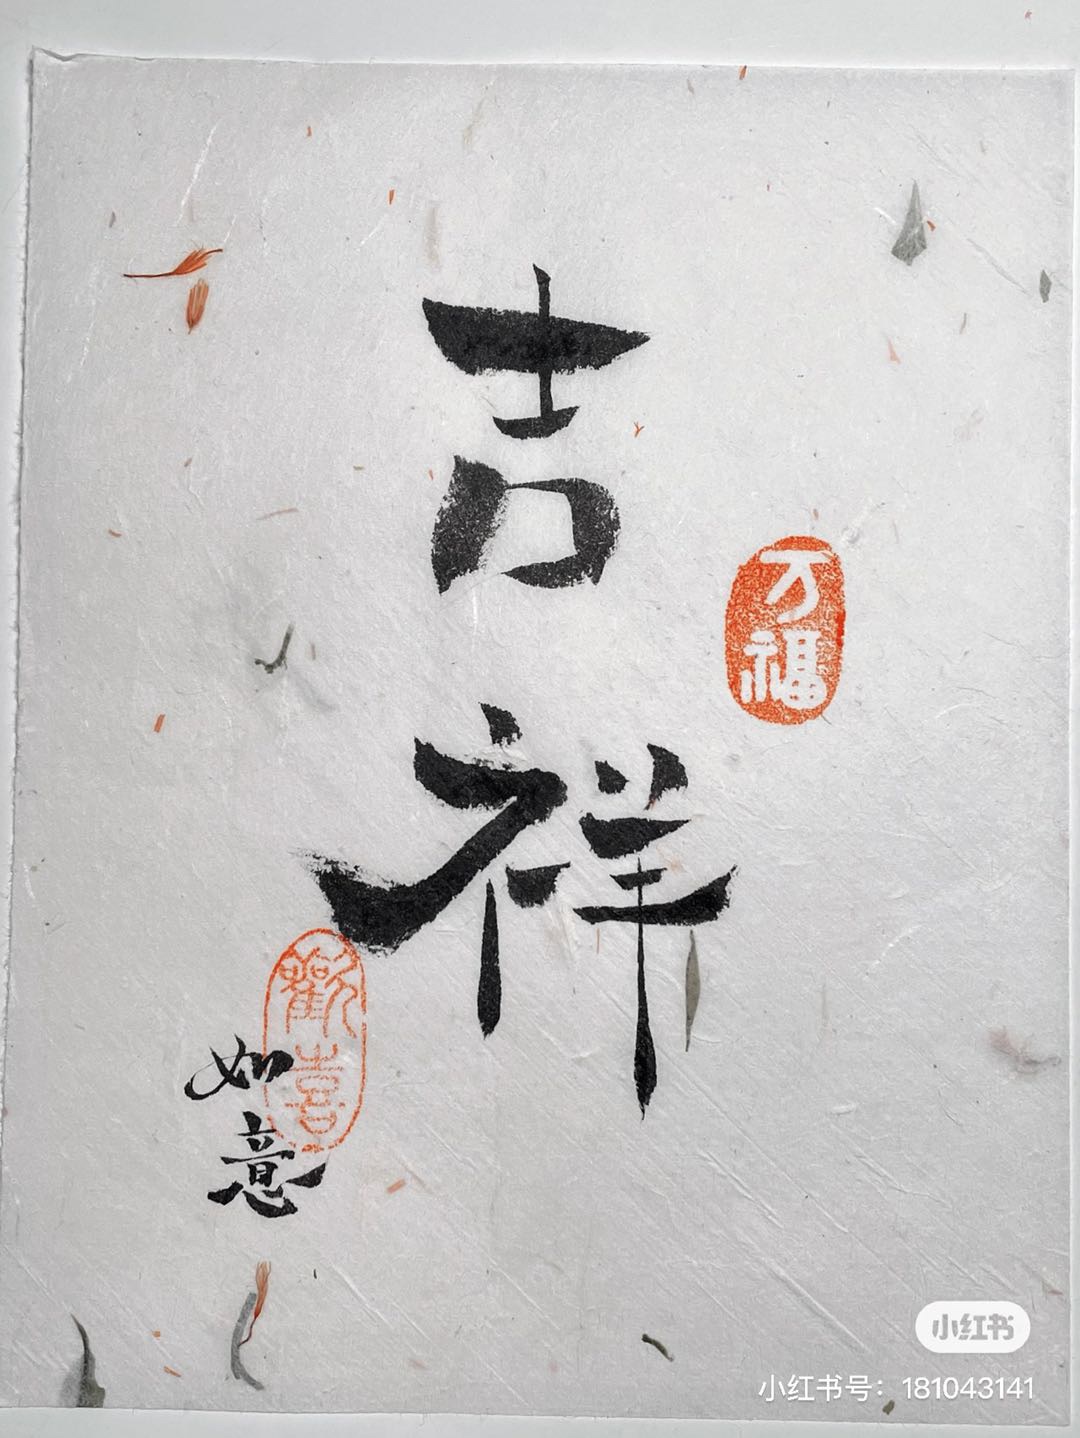 吉祥
万福
如意
歡喜
小红书
小红书号：181043141